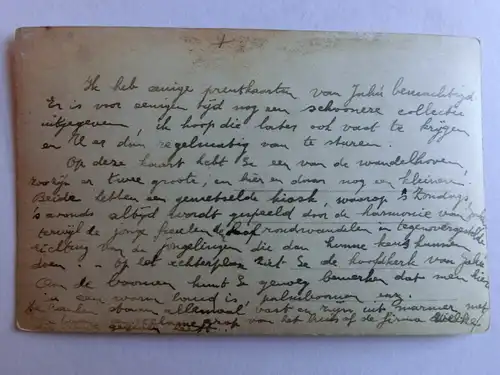 Ik heb eenige prentkaarten van Jahú bemachtigd.
Er is voor eenigen tijd nog een schoonere collectie
uitgegeven, ik hoop die later ook vast te krijgen
en U ze dan regelmatig van te sturen.
Op deze kaart hebt Se een van de wandelhoven,
er twee groote, en hier en daar nog een kleinere.
Beide hebben een gemetselde kiosk, waarop 's Zondags
's avonds altijd wordt gespeeld door de harmonie van
terwijl de jonge rondwandelen in tegenovergestelde
richting van de jongelingen die dan hunne keus kunnen
doen. Op het achterplan ziet Se de hoofdkerk van Jahú
Aan de boomen kunt Se genoeg bemerken dat men hier
in een warm land is, palmboomen
De banken staan allemaal vast en zijn uit marmer met
van het huis of de firma welke